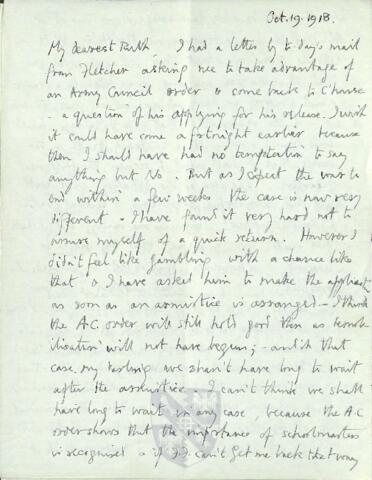 Oct. 19. 1918.
My dearest Ruth, I had a letter by to day's mail
from Fletcher asking me to take advantage of
an Army Council order & come back to C'house
- a question of his applying for his release. I wish
it could have come a fortnight earlier because
then I should have had no temptation to say
anything but No. But as I expect the war to
end within a few weeks the case is now very
different. I have found it very hard not to
assure myself of a quick return. However I
didn't feel like gambling with a chance like
that & I have asked him to make the applicat
as soon as an armistice is arranged - I think
the A.C. order will still hold good then as demob
ilisation will not have begun; - and in that
case my darling we shan't have long to wait
after the armistice. I can't think we shall
have long to wait in any case, because the A.C
order shows that the importance of schoolmasters
is recognised & if F.F. can't get me back that way